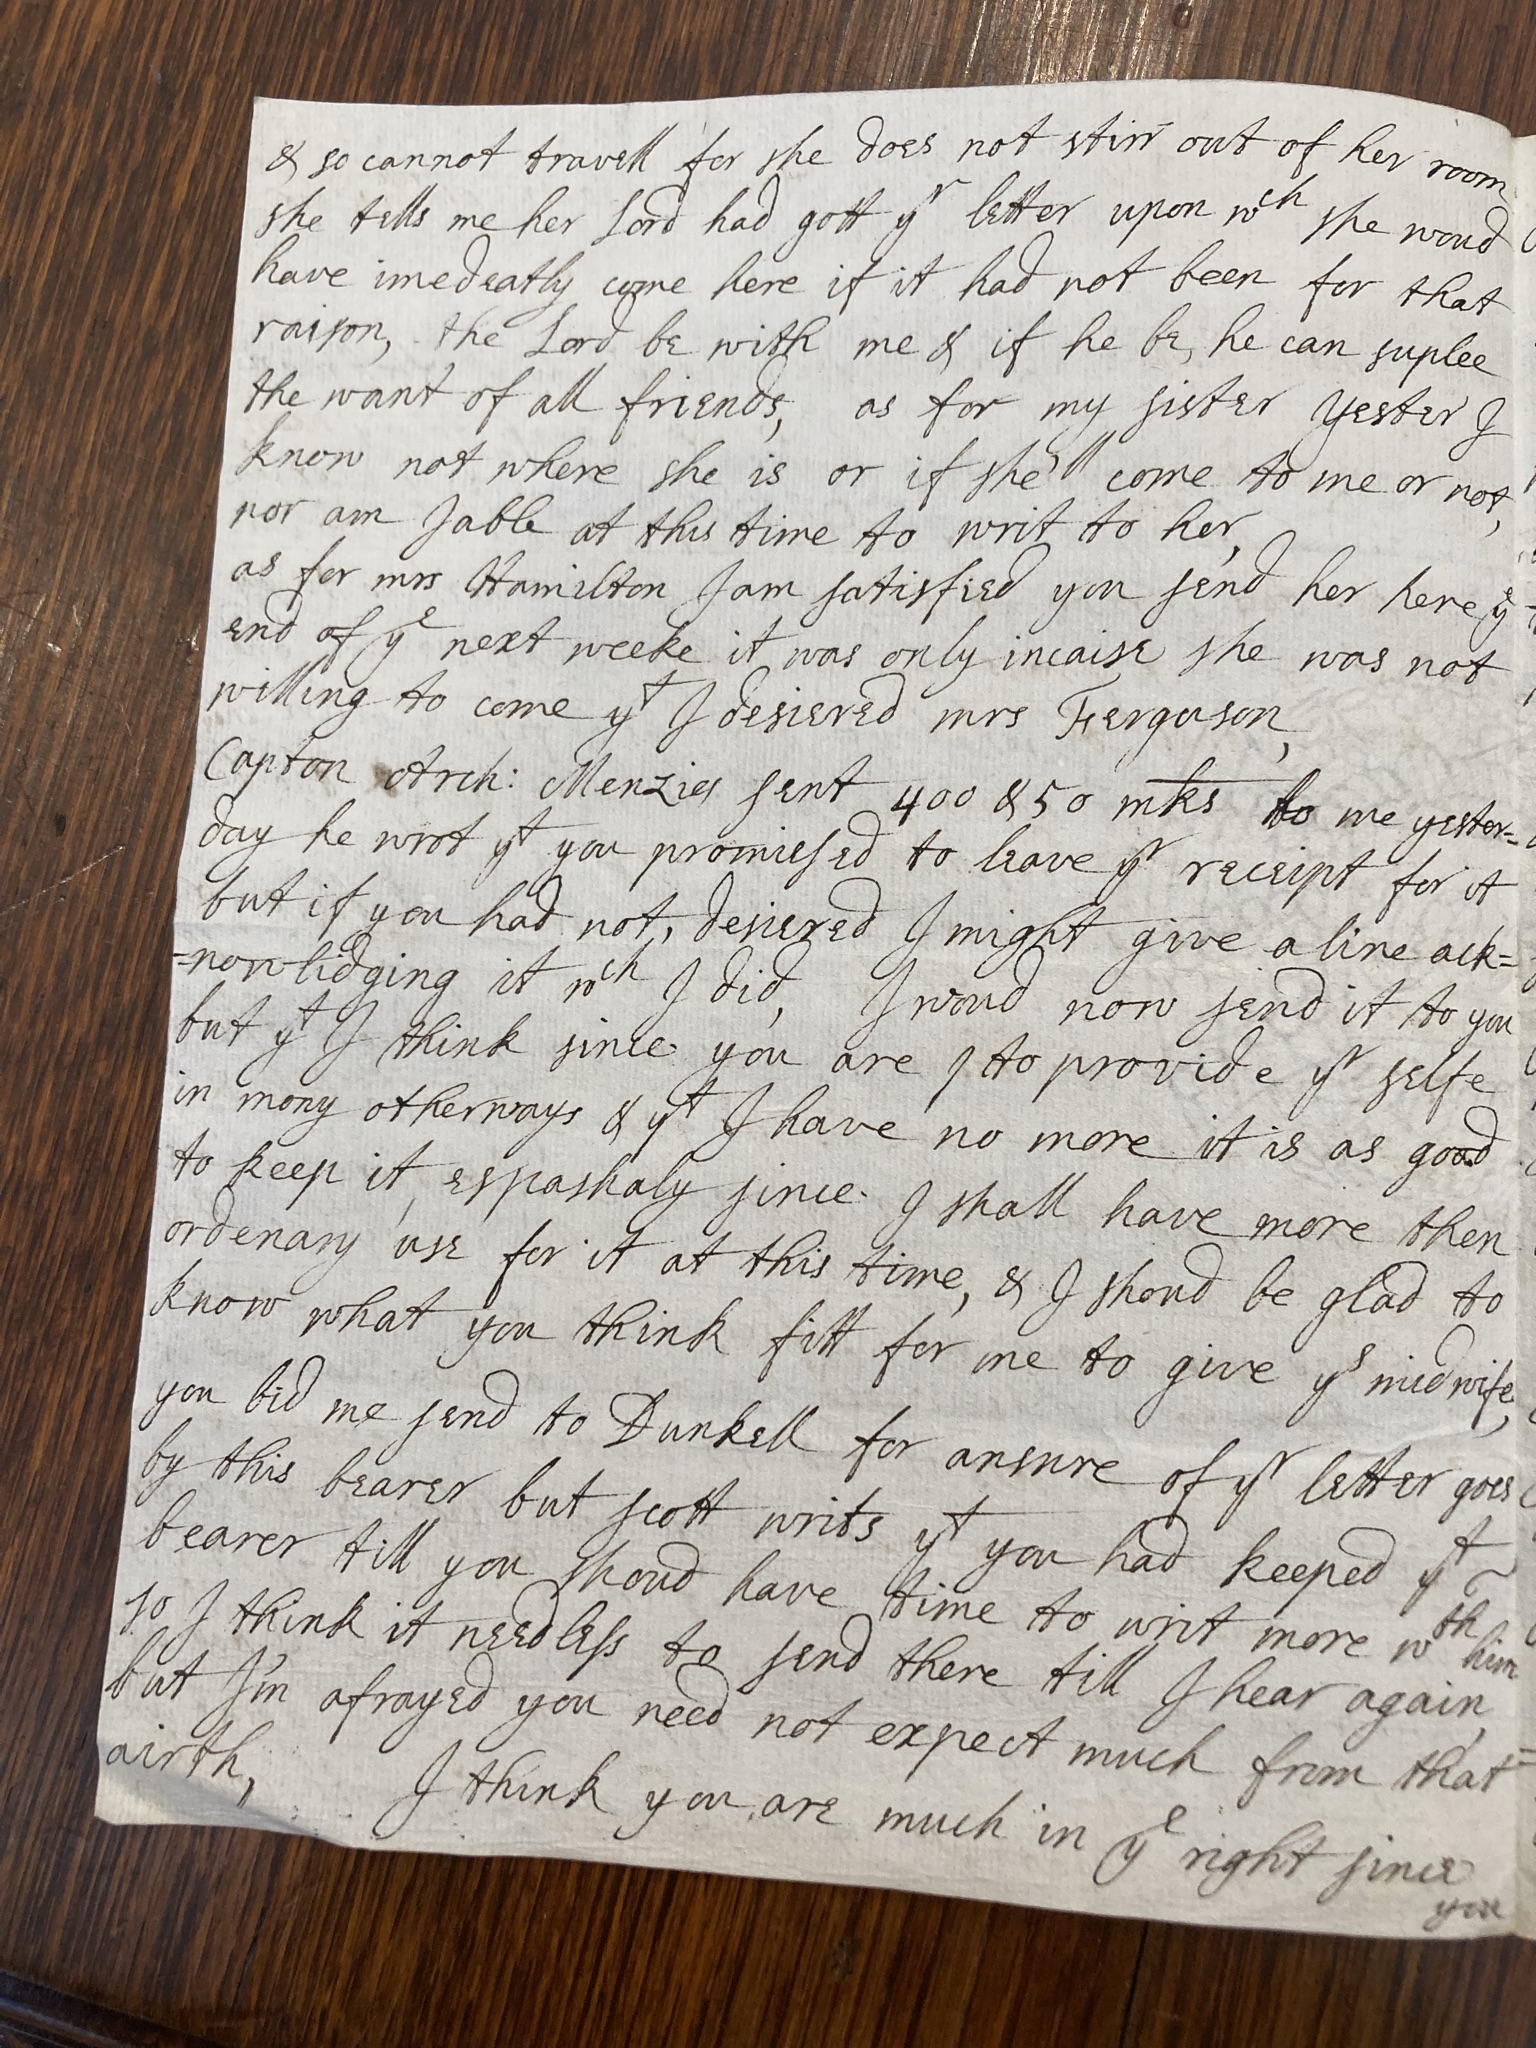 & so cannot travell for she does not stirr out of her room
she tells me her Lord had gott yr letter upon wch she woud
have imedeatly come here if it had not been for that
raison, the Lord be with me & if he be, he can suplee
the want of all friends, as for my sister Yester I
know not where she is or if she'll come to me or not,
nor am I able at this time to writ to her,
as for mrs Hamilton I am satisfied you send her here ye
end of ye next weeke it was only incaise she was not
willing to come yt I desiered mrs Fferguson,
Capton Arch: Menzies sent 400 & 50 mks to me yester=
day he wrot yt you promiesed to leave yr receipt for it
but if you had not, desiered I might give a line ack=
=nowlidging it wch I did, I woud now send it to you
but yt I think since you are to provide yr selfe
in mony otherways & yt I have no more it is as good
to keep it, espashaly since I shall have more then
ordenary use for it at this time, & I shoud be glad to
know what you think fitt for me to give ye midwife,
you bid me send to Dunkell for ansure of yr letter goes
by this bearer but scott writs yt you had keeped yt
bearer till you shoud have time to writ more wth him
so I think it needless to send there till I hear again,
but I'm afrayed you need not expect much from that
airth, I think you are much in ye right since
you